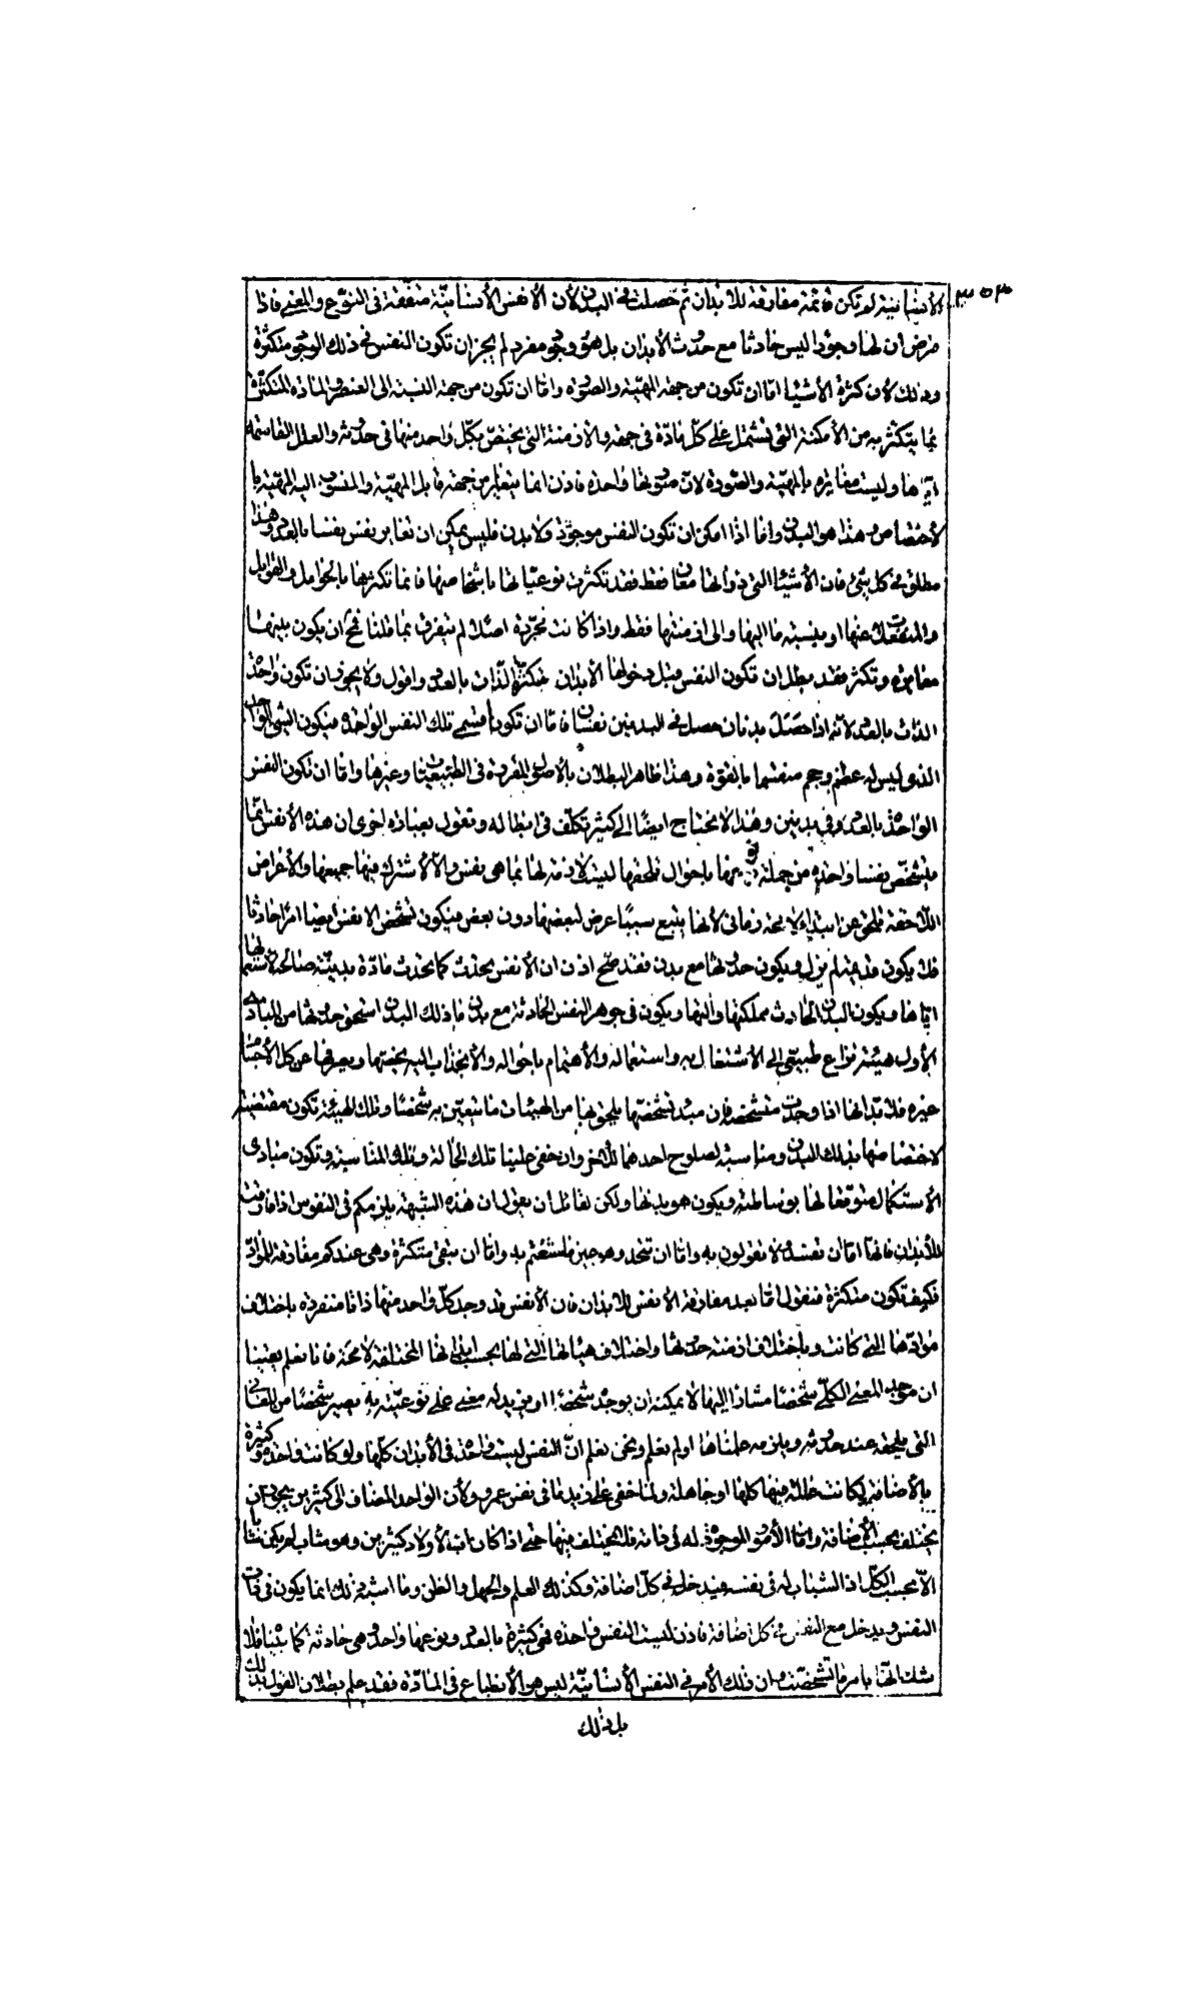 ٣٥٣
الأنسانية لم تكن قائمة مفارقة للأبدان ثم حصلت فى البدن لأن الأنفس الأنسانية متفقة فى النوع والمعنى فاذا
فرض ان لها وجودا ليس حادثا مع حدوث الأبدان بل هو وجود مفرد لم يجز ان تكون النفس فى ذلك الوجود متكثرة
وذلك لأن كثرة الأشياء اما ان تكون من جهة المهية والصورة واما ان تكون من جهة النسبة الى العنصر والمادة المتكثرة
بما يتكثر به من الأمكنة التى تشتمل على كل مادة فى جهة والأزمنة التى يختص بكل واحد منها فى حدوثه والعلل القاسمة
اياها وليست مغايرة بالمهية والصورة لان صورتها واحدة فاذن انما يتغاير من جهة قابل المهية والمنسوب اليه المهية با
لأختصاص وهذا هو البدن واما اذا امكن ان تكون النفس موجودة ولا بدن فليس يمكن ان تغاير نفس نفسا بالعدد وهذا
مطلق فى كل شئ فان الأشياء التى ذواتها معان فقط فقد تكثرت نوعياتها باشخاصها فانما تكثرها بالحوامل والقوابل
والمنفعلات عنها او بنسبة ما اليها والى ازمنتها فقط واذا كانت مجردة اصلا لم يتفرق بما قلنا فمح ان يكون بينها
مغايرة وتكثر فقد بطل ان تكون النفس قبل دخولها الأبدان متكثرة الذات بالعدد واقول ولا يجوز ان تكون واحدة
الذات بالعدد لأنه اذا حصل بدنان حصل فى البدنين نفسان فاما ان تكونا قسمى تلك النفس الواحدة فيكون الشئ الواحد
الذى ليس له عظم وحجم منقسما بالقوة وهذا ظاهر البطلان بالأصول المقررة فى الطبيعيات وغيرها واما ان تكون النفس
الواحدة بالعدد فى بدنين وهذا لا يحتاج ايضا الى كثير تكلف فى ابطاله ونقول بعبارة اخرى ان هذه الأنفس انما
يتشخص نفسا واحدة من جملة نوعها باحوال تلحقها ليست لازمة لها بما هى نفس والا لأشترك فيها جميعها والأعراض
اللاحقة تلحق عن ابتداء لا محة زمانى لأنها يتبع سببا عرض لبعضها دون بعض فيكون تشخص الانفس ايضا امرا حادثا
فلا يكون قديمة لم يزل ويكون حدوثها مع بدن فقد صح اذن ان الأنفس يحدث كما يحدث مادة بدنية صالحة لاستعمالها
اياها ويكون البدن الحادث مملكتها وآلتها ويكون فى جوهر النفس الحادثة مع بدن ما ذلك البدن استحق حدوثها من المبادى
الأول هيئة نزاع طبيعى الى الأشتغال به واستعماله والأهتمام باحواله والأنجذاب اليه يخصها ويصرفها عن كل الأجسام
غيره فلا بد انها اذا وجدت متشخصة فان مبدء تشخصها يلحق بها من الهيئات ما يتعين به شخصا وتلك الهيئة تكون مقتضية
لاختصاصها بذلك البدن ومناسبة لصلوح احدهما للأخر وان خفى علينا تلك الحالة وتلك المناسبة وتكون مبادى
الأستكمال متوقعا لها بوساطته ويكون هو بدنها ولكن لقائل ان يقول ان هذه الشبهة يلزمكم فى النفوس اذا فارقت
للأبدان فانها اما ان تفسد ولا تقولون به واما ان تتحد وهو عين ما شنعتم به واما ان تبقى متكثرة وهى عندكم مفارقة للمواد
فكيف تكون متكثرة فنقول اما بعد مفارقة الأنفس للأبدان فان الأنفس قد وجد كل واحد منها ذاتا منفردة باختلاف
موادها التى كانت وباختلاف ازمنة حدوثها واختلاف هيئاتها التى لها بحسب ابدانها المختلفة لا محة فانا نعلم يقينا
ان موجد المعنى الكلى شخصا مشارا اليها لا يمكنه ان يوجده شخصا او يزيد له معنى على نوعيته به يصير شخصا من المعانى
التى يلحقه عند حدوثه ويلزمه علمناها او لم نعلم ونحن نعلم ان النفس ليست واحدة فى الأبدان كلها ولو كانت واحدة وكثيرة
بالأضافة لكانت عالمة فيها كلها او جاهلة ولما خفى على زيد ما فى نفس عمرو لأن الواحد المضاف الى كثيرين يجوز ان
يختلف بحسب الأضافة واما الأمور الموجودة له فى ذاته فلا يختلف فيها حتى اذا كان اب لأولاد كثيرين وهو شاب لم يكن شابا
الا بحسب الكل اذ الشباب له فى نفسه فيدخل فى كل اضافة وكذلك العلم والجهل والظن وما اشبه ذلك انما يكون فى ذات
النفس ويدخل مع النفس فى كل اضافة فاذن ليست النفس واحدة فهى كثيرة بالعدد ونوعها واحد وهى حادثة كما بيناه فلا
شك انها بامر ما تشخصت وان ذلك الأمر فى النفس الأنسانية ليس هو الأنطباع فى المادة فقد علم بطلان القول بذلك
بل ذلك